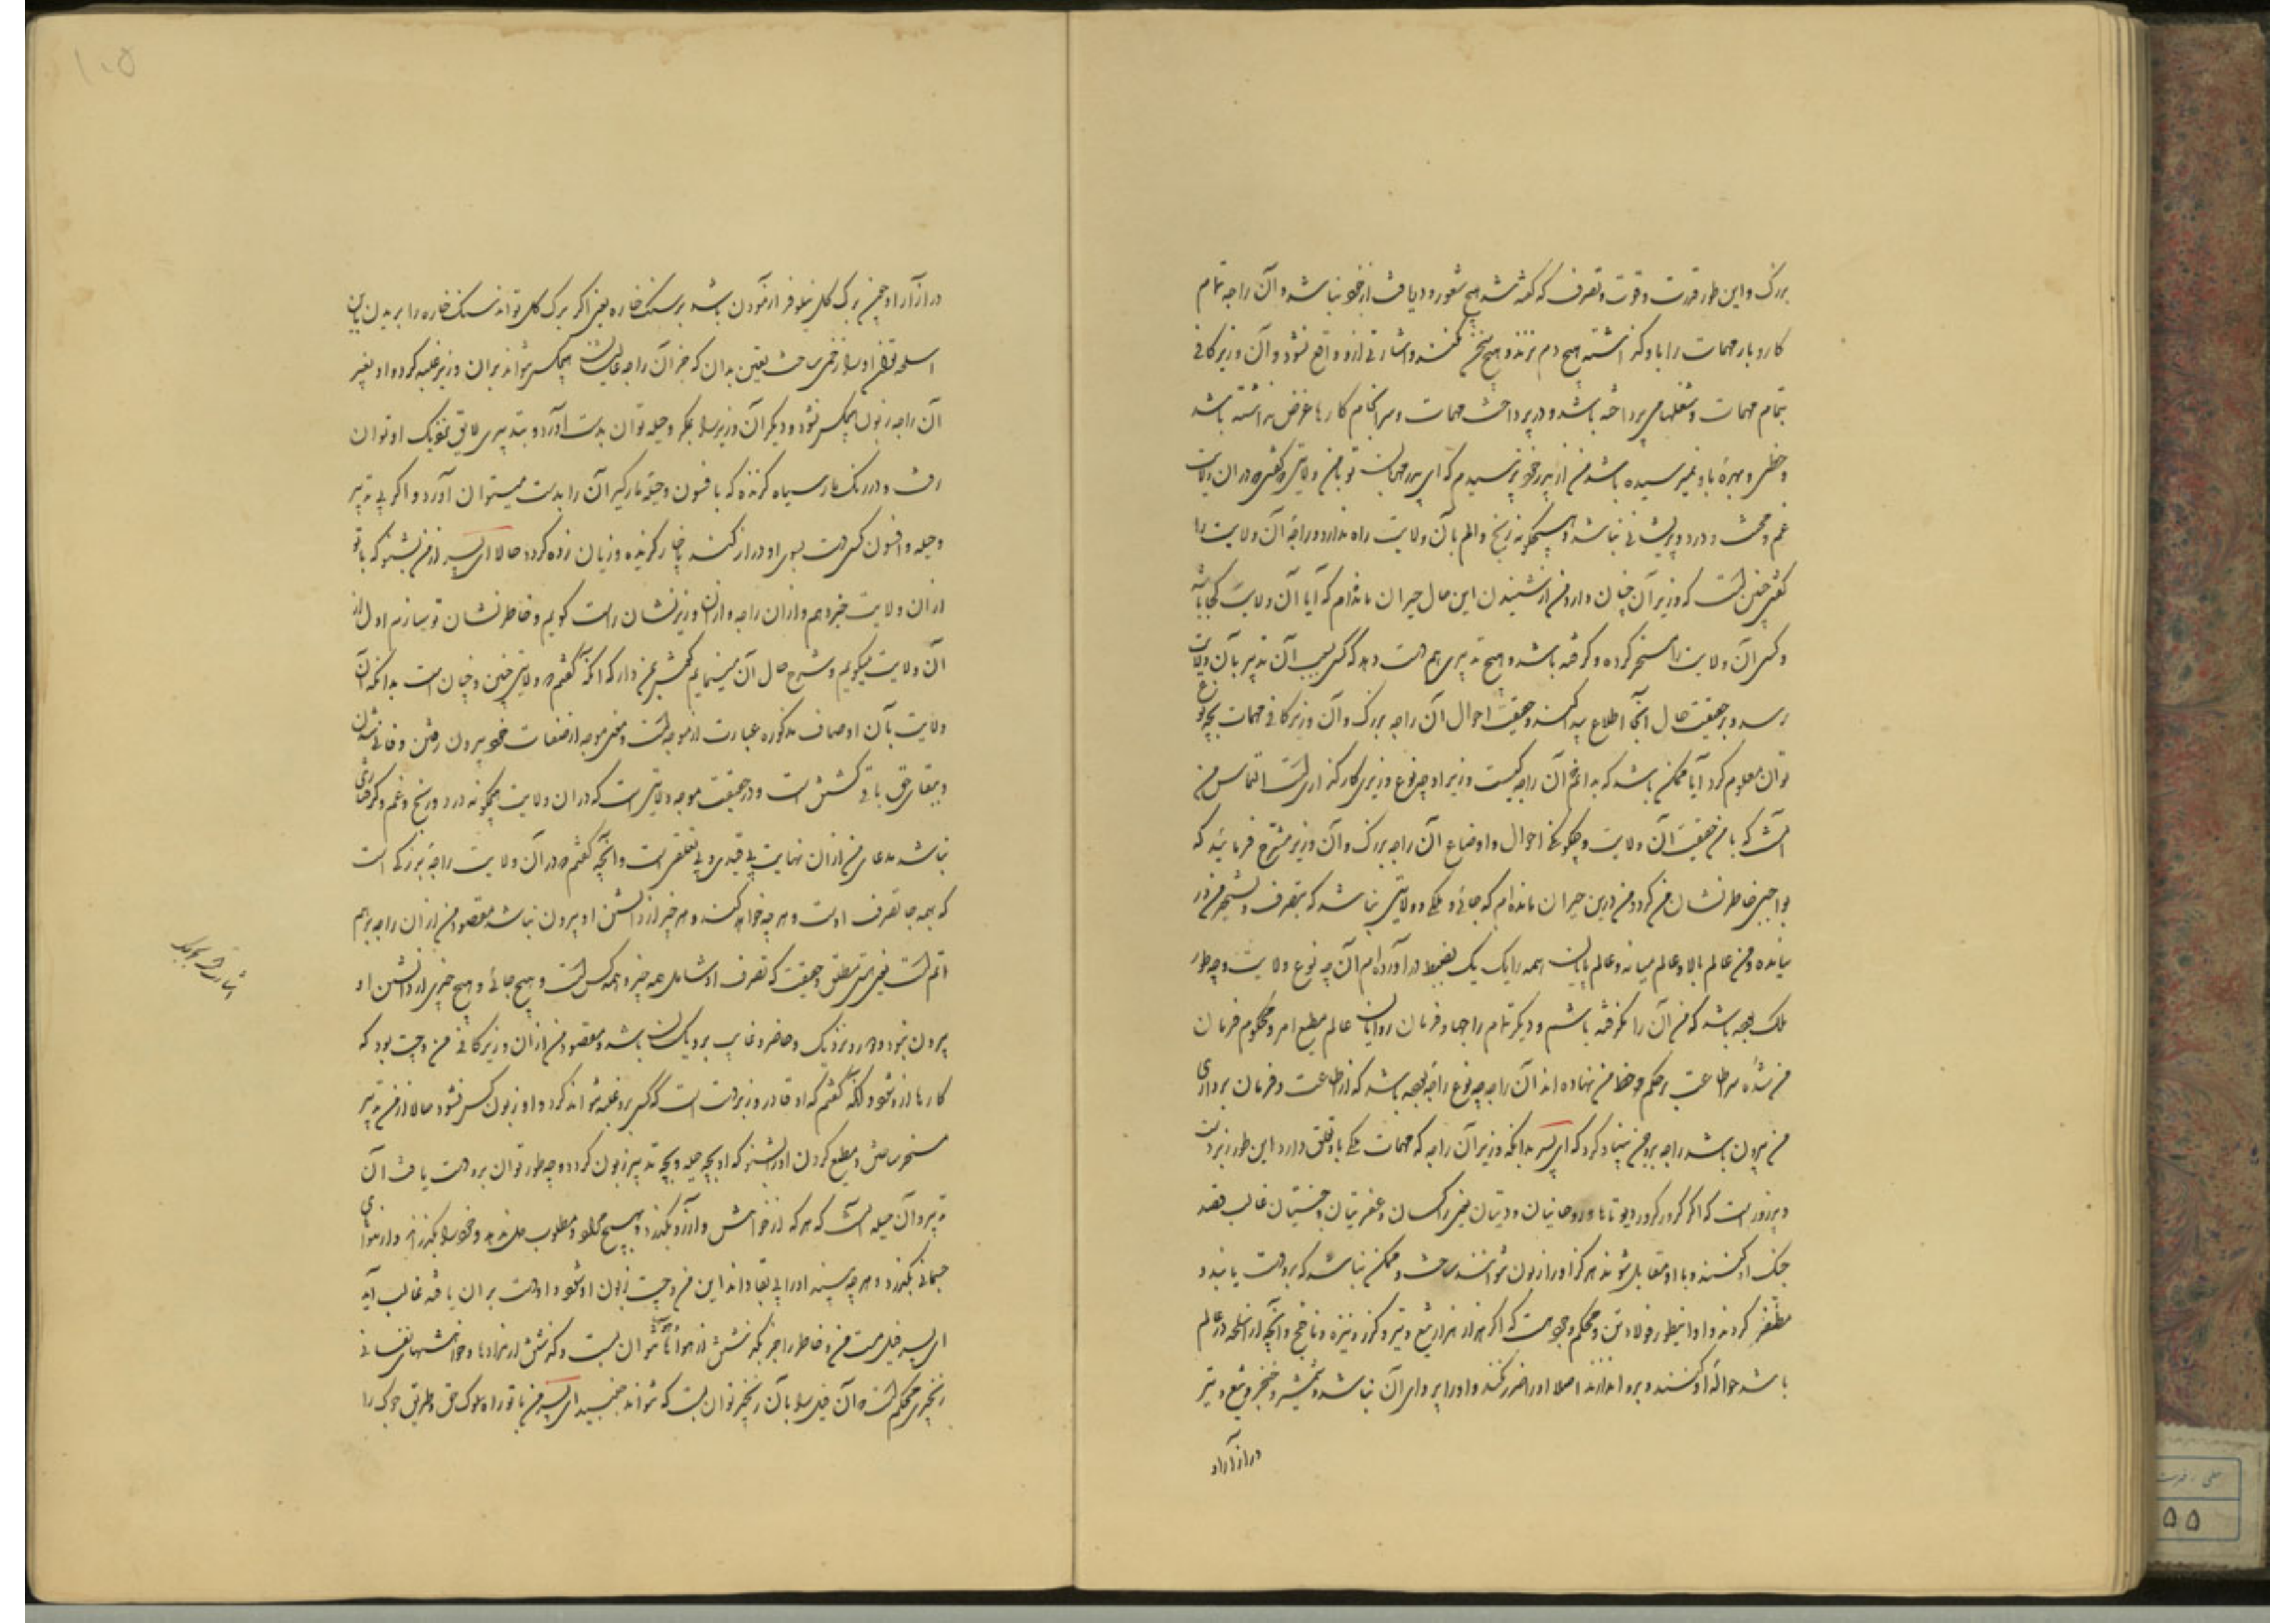 بزرگ و این طور قدرت و قوت و تصرف که گفته شد هیچ شعور و دریافت از خود نباشد و آن راجه تمام
کار و بار مهمات را باو گذاشته هیچ دم نزند و هیچ نکند و اشارتی ازو واقع نشود و آن وزیر کافی
بتمام مهمات و شغلها می پرداخته باشد و در پرداخت مهمات و سرانجام کارها غرض نداشته باشد
و حظی و بهره باو نمیرسیده باشد من از پدر خود پرسیدم که ای پدر مهربان تو با من ولایتی گفتی که در آن ولایت
غم و محنت و درد و پریشانی نباشد و هیچگونه رنج و الم بآن ولایت راه ندارد و راجه آن ولایت را
گفتی چنین است که وزیر آن چنان دارد من از شنیدن این حال حیران مانده ام که آیا آن ولایت کجا باشد
و کسی آن ولایت را مسخر کرده و گرفته باشد و هیچ تدبیری هم هست که کسی بسبب آن تدبیر بآن ولایت
رسد و بر حقیقت حال آنجا اطلاع پیدا کند و حقیقت احوال آن راجه بزرگ و آن وزیر کافی مهمات بچه نوع
توان معلوم کرد آیا ممکن باشد که بدانم آن راجه کیست و وزیر او چه نوع وزیری کارگذاری است التماس من
آنست که با من حقیقت آن ولایت و چگونگی احوال و اوضاع آن راجه بزرگ و آن وزیر مشرح فرمائید که
بواجبی خاطرنشان من گردد من درین حیران مانده ام که جائی و ملکی و ولایتی نباشد که بتصرف و تسخیر من در
نیامده و من عالم بالا و عالم میانه و عالم پایان همه را یک یک بضبط درآورده ام آن چه نوع ولایت و چه طور
ملک بوده باشد که من آن را نگرفته باشم و دیگر تمام راجها و فرمان روایان عالم مطیع امر و محکوم فرمان
من شده سر اطاعت بر حکم و خط من نهاده اند آن راجه چه نوع راجه بوده باشد که از اطاعت و فرمان برداری
من بیرون باشد راجه بروجن بنیاد کرد که ای پسر بدانکه وزیر آن راجه که مهمات ملکی باو تعلق دارد این طور زبردست
و پرزور است که اگر کرور کرور دیوتاها و روحانیان و دیتان یعنی راکسان و عفریتان و جنیتان غالب قصد
جنگ او کنند و با او مقابل شوند هرگز او را زبون نتوانند ساخت و ممکن نباشد که برو دست یابند و
مظفر گردند و او اینطور فولادتن و محکم وجود است که اگر هزار هزار تیغ و تیر و گرز و نیزه و ناچخ و آنچه از اسلحه در عالم
باشد حواله او کنند و برو اندازند اصلا او را ضرر نکند و او را پروای آن نباشد و شمشیر و خنجر و تیغ و تیر
در آزار او
۱۰۵
در آزار او چون برگ گل نیلوفر آزمودن باشد بر سنگ خاره یعنی اگر برگ گل تواند سنگ خاره را بریدن این
اسلحه تواند او را زخمی ساخت یقین بدان که جز آن راجه عالیشان هیچکس نتواند بران وزیر غلبه کرد و او بغیر
آن راجه زبون هیچکس نشود و دیگر آن وزیر را بمکر و حیله توان بدست آورد و بتدبیری لایق بنزدیک او توان
رفت و در رنگ مار سیاه گزنده که بافسون و حیله مارگیر آن را بدست میتوان آورد و اگر بی تدبیر
و حیله و افسون کسی دست بسوی او دراز کند ناچار گزیده و زیان زده گردد حالا ای پسر از من بشنو که با تو
از آن ولایت خبر دهم و از آن راجه و از آن وزیر نشان راست گویم و خاطرنشان تو سازم اول از
آن ولایت میگویم و شرح حال آن مینمایم گوش بمن دار که آنکه گفتم که ولایتی چنین و چنان است بدانکه آن
ولایت بآن اوصاف مذکوره عبارت از موجه است و معنی موجه از صفات خود بیرون رفتن و فانی شدن
و ببقای حق باقی گشتن است و در حقیقت موجه ولایتی است که در آن ولایت هیچگونه درد و رنج و غم و گرفتاری
نباشد مدعای من از آن نهایت بی قیدی و بی تعلقی است و آنچه گفتم که در آن ولایت راجه بزرگی است
که همه جا تصرف اوست و هر چه خواهد کند و هر چیز از دانش او بیرون نباشد مقصود من از آن راجه برهم
آتم است یعنی هستی مطلق و حقیقت که تصرف او شامل همه چیز و همه کس است و هیچ جائی و هیچ چیزی از دانش او
بیرون نبود و دور و نزدیک و حاضر و غایب برو یکسان باشد و مقصود من از آن وزیر کافی من و چت بود که
کارها ازو شود و آنکه گفتم که او قادر و زبردست است که کسی برو غلبه نتواند کرد و او زبون کس نشود حالا از من تدبیر
مسخر ساختن و مطیع کردن او را بشنو که او بچه حیله و بچه تدبیر زبون گردد و چه طور توان برو دست یافت آن
تدبیر و آن حیله آنست که هر که از خواهش و آرزو بگذرد و بهیچ مدعا و مطلوب دل ننهد و خود را بگذراند و از هوای
جسمانی بگذرد و هر چه بیند او را بی بقا داند این من و چت زبون او شود و او دست بران یافته غالب آید
ای پسر فیل مست من و خاطر را جز بگذشتن از هواها نتوان بست و گذشتن از مرادها و خواهشهای نفسانی
زنجیری محکم است که آن فیل را بآن زنجیر توان بست که نتواند جنبید ای پسر من با تو راه سلوک حق و طریق جوگ را